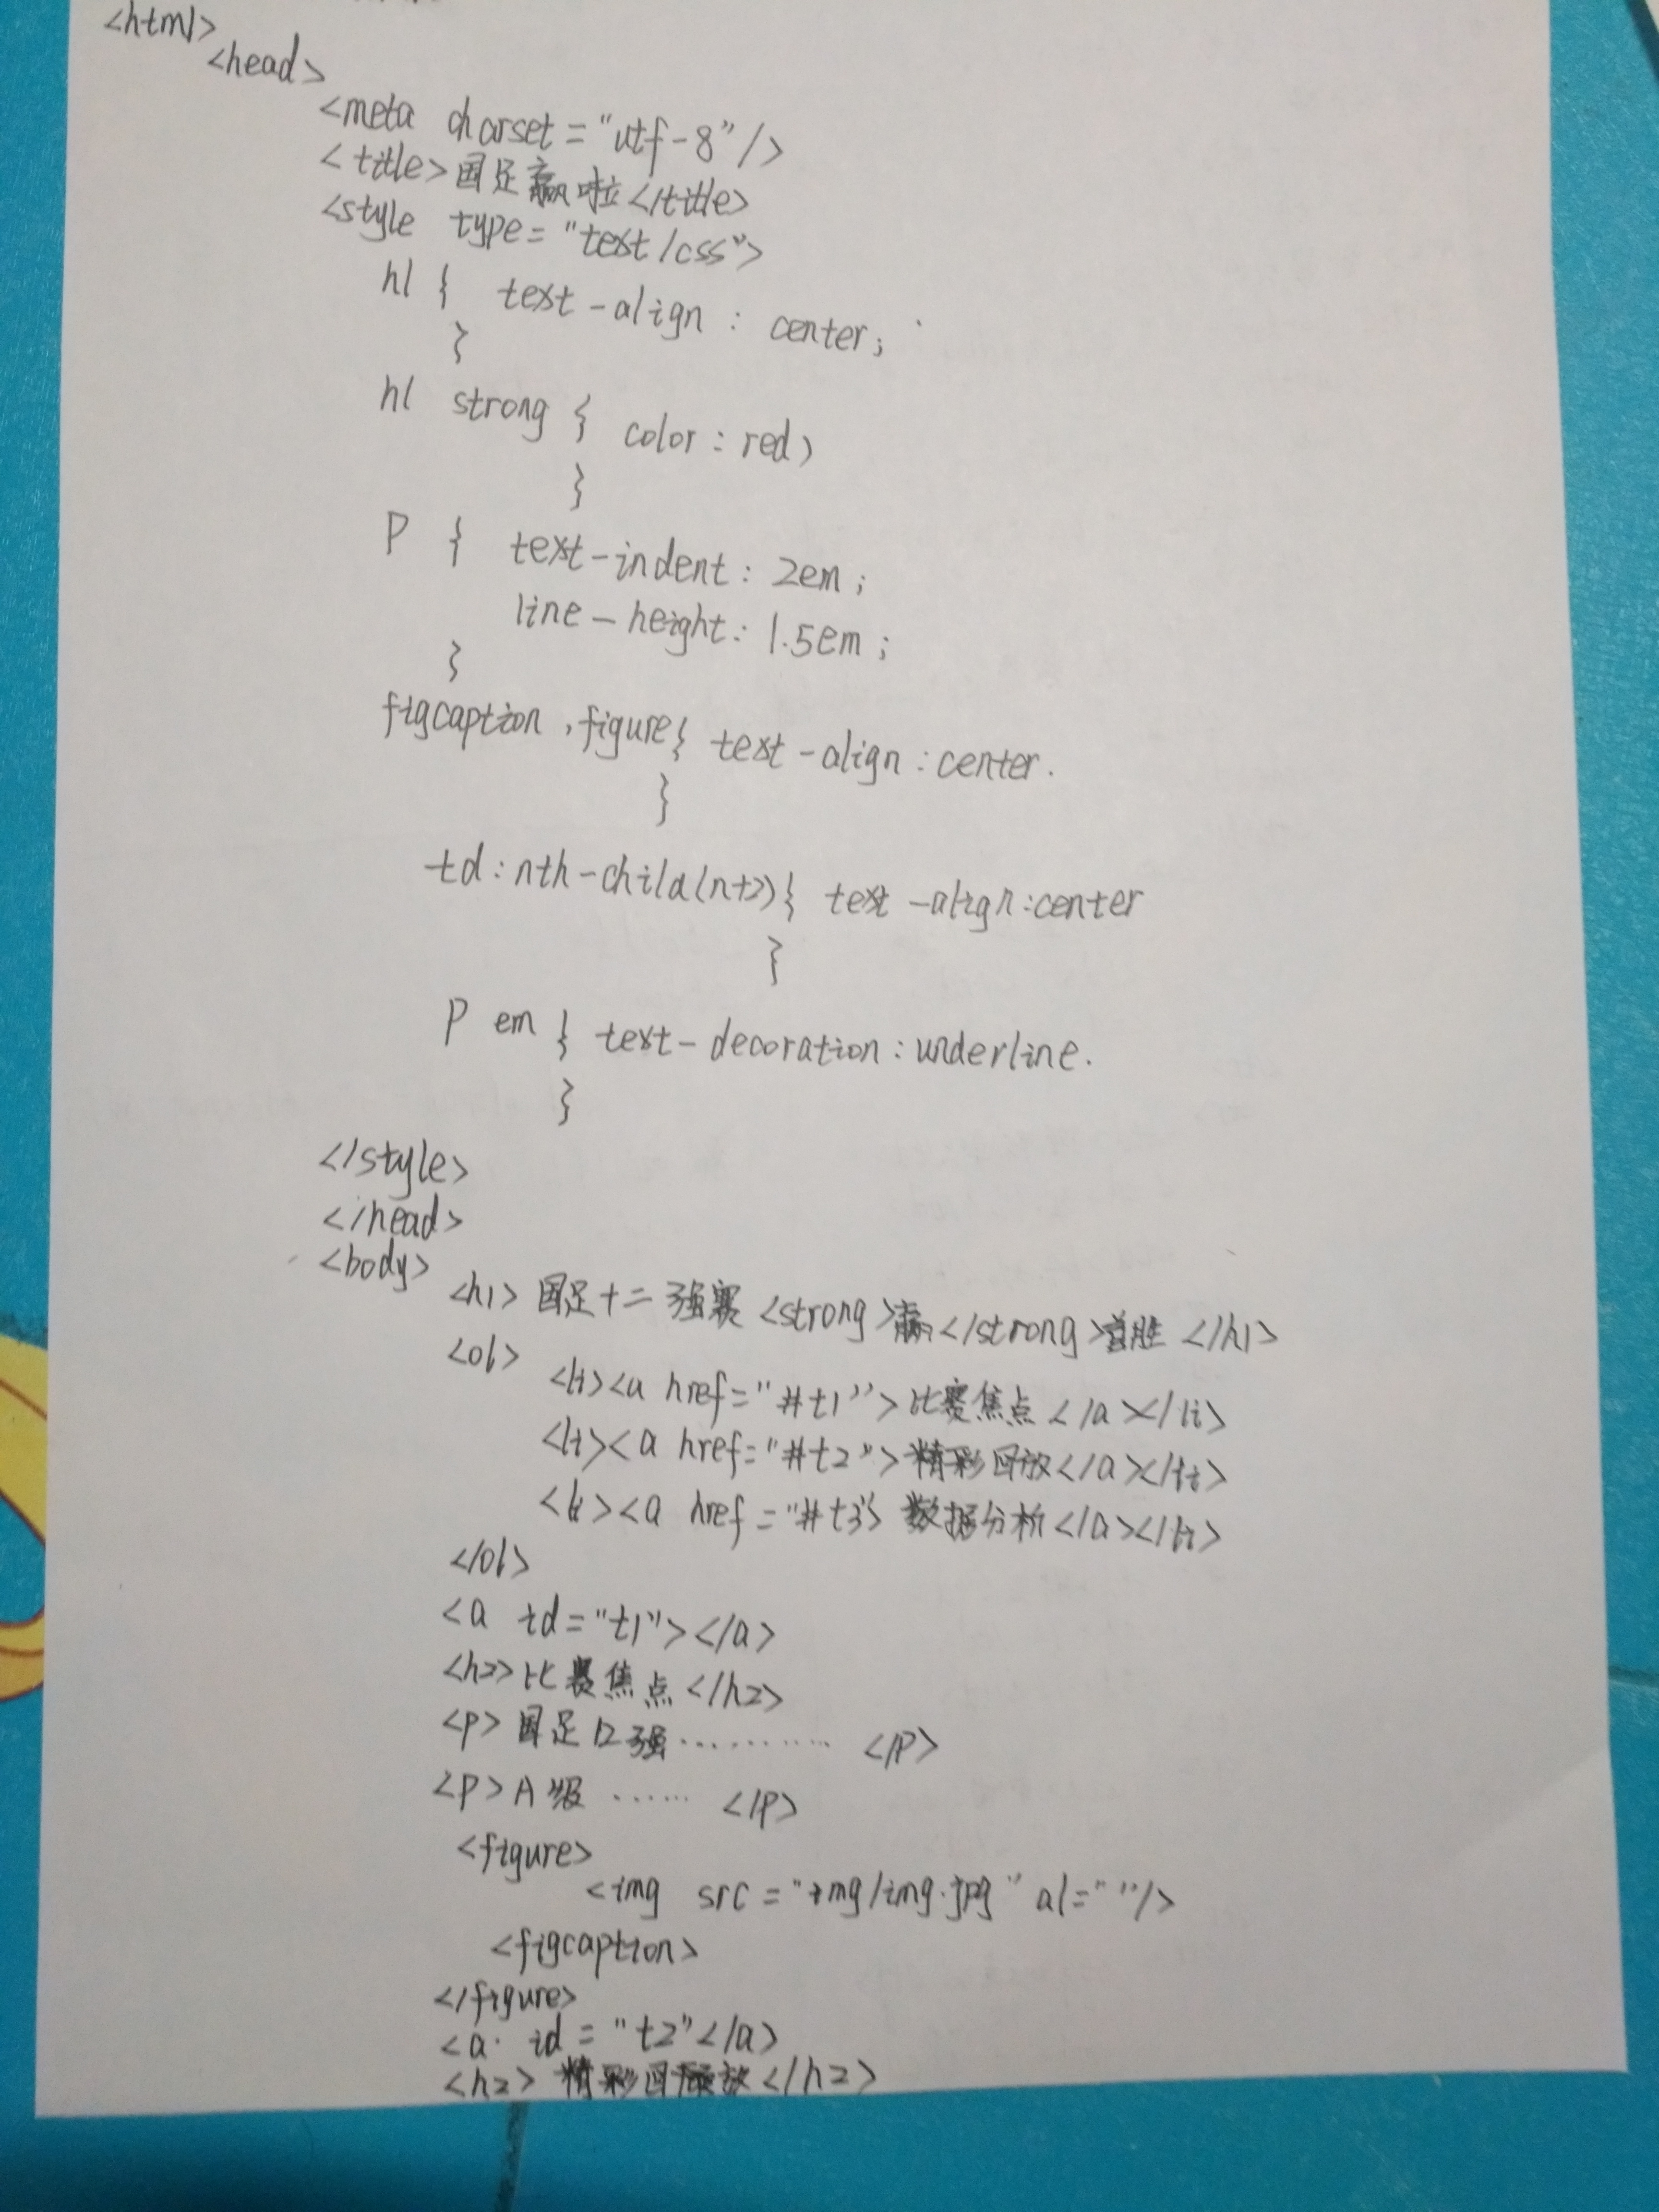 <html>
<head>
<meta charset="utf-8"/>
<title>国足赢啦</title>
<style type="text/css">
h1 { text-align : center;
}
h1 strong { color : red;
}
P { text-indent : 2em ;
line-height : 1.5em ;
}
figcaption , figure{ text-align : center.
}
td : nth-child(n+2){ text-align:center
}
P em { text-decoration : underline.
}
</style>
</head>
<body>
<h1> 国足十二强赛 <strong>赢</strong>首胜 </h1>
<ol>
<li><a href="#t1">比赛焦点</a></li>
<li><a href="#t2">精彩回放</a></li>
<li><a href="#t3> 数据分析</a></li>
</ol>
<a id="t1"></a>
<h2>比赛焦点</h2>
<p>国足12强………… </p>
<p>A级 …… </p>
<figure>
<img src="img/img.jpg" al=""/>
<figcaption>
</figure>
<a id="t2"</a>
<h2>精彩回放</h2>